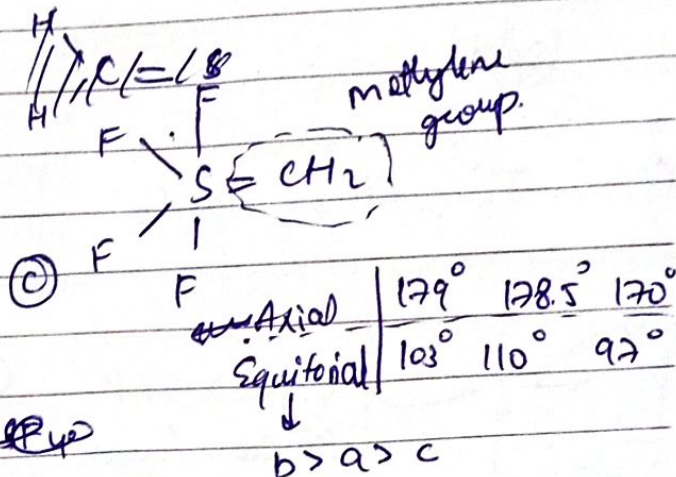 H
C = S
H
F
methylene
group.
F
S = CH2
F
F
(C)
Axial 179° 178.5° 170°
Equitorial 103° 110° 97°
↓
b > a > c